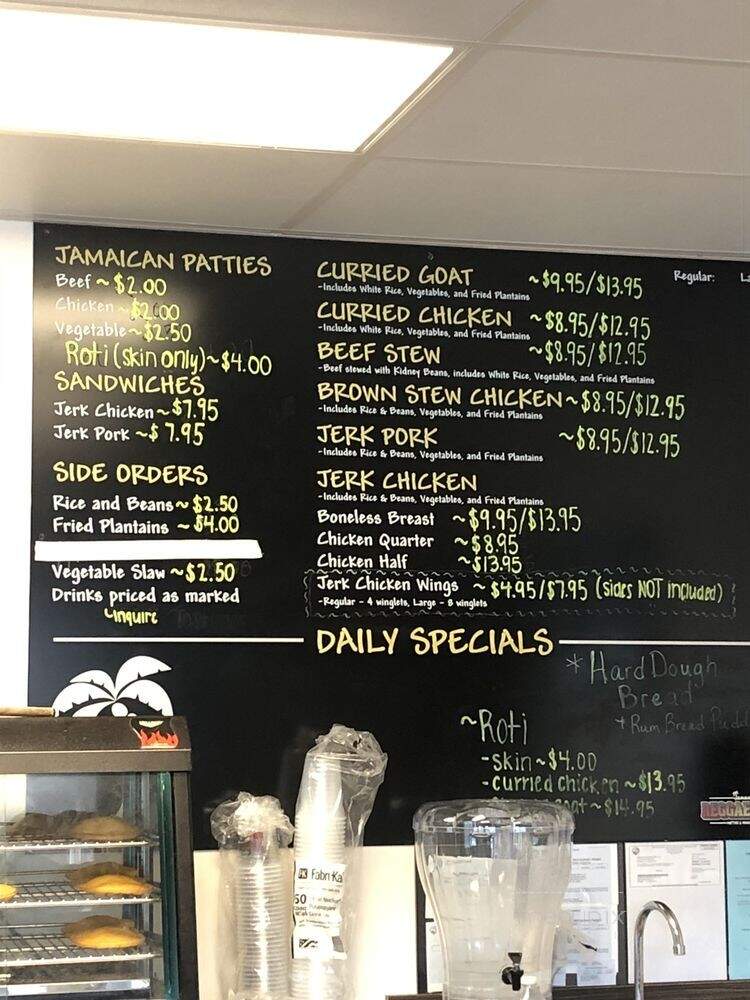 JAMAICAN PATTIES
Beef ~ $2.00
Chicken ~ $2.00
Vegetable ~ $2.50
Roti (skin only) ~ $4.00
SANDWICHES
Jerk Chicken ~ $7.95
Jerk Pork ~ $7.95
SIDE ORDERS
Rice and Beans ~ $2.50
Fried Plantains ~ $4.00
Vegetable Slaw ~ $2.50
Drinks priced as marked
Inquire
Regular:
CURRIED GOAT ~ $9.95/$13.95
-Includes White Rice, Vegetables, and Fried Plantains
CURRIED CHICKEN ~ $8.95/$12.95
-Includes White Rice, Vegetables, and Fried Plantains
BEEF STEW ~ $8.95/$12.95
-Beef stewed with Kidney Beans, includes White Rice, Vegetables, and Fried Plantains
BROWN STEW CHICKEN ~ $8.95/$12.95
-Includes Rice & Beans, Vegetables, and Fried Plantains
JERK PORK ~ $8.95/$12.95
-Includes Rice & Beans, Vegetables, and Fried Plantains
JERK CHICKEN
-Includes Rice & Beans, Vegetables, and Fried Plantains
Boneless Breast ~ $9.95/$13.95
Chicken Quarter ~ $8.95
Chicken Half ~ $13.95
Jerk Chicken Wings ~ $4.95/$7.95 (sides NOT included)
-Regular - 4 winglets, Large - 8 winglets
DAILY SPECIALS
* Hard Dough
Bread
+ Rum Bread
~Roti
-skin ~ $4.00
-curried chicken ~ $13.95
~ $14.95
REGGAE
FK FabriKal
50